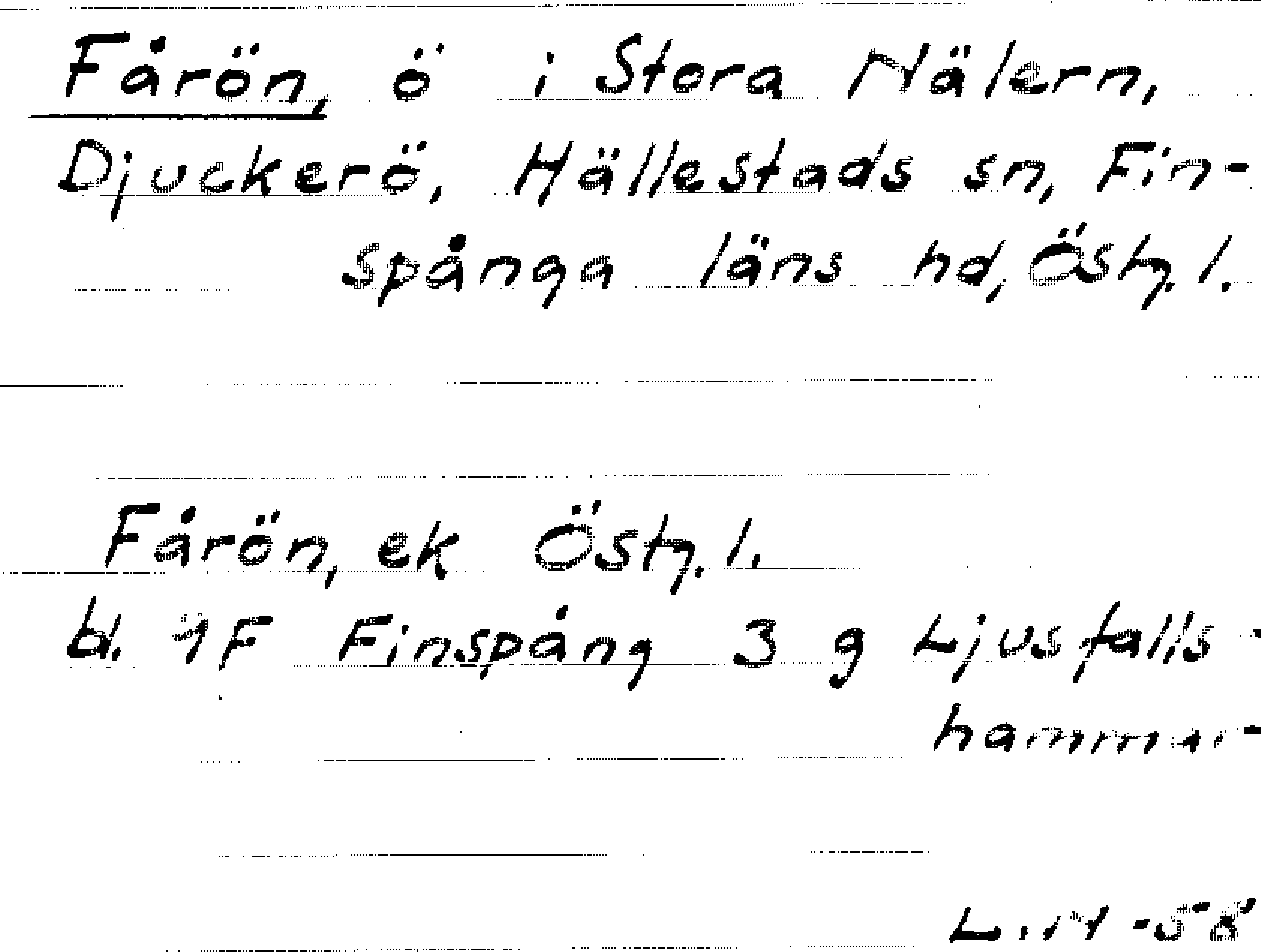 Fårön, ö i Stora Nälern,
Djuckerö, Hällestads sn, Fin-
spånga läns hd, Östg. l.
Fårön, ek Östg. l.
bl. 1F Finspång 3 g Ljusfalls-
hammar
-58